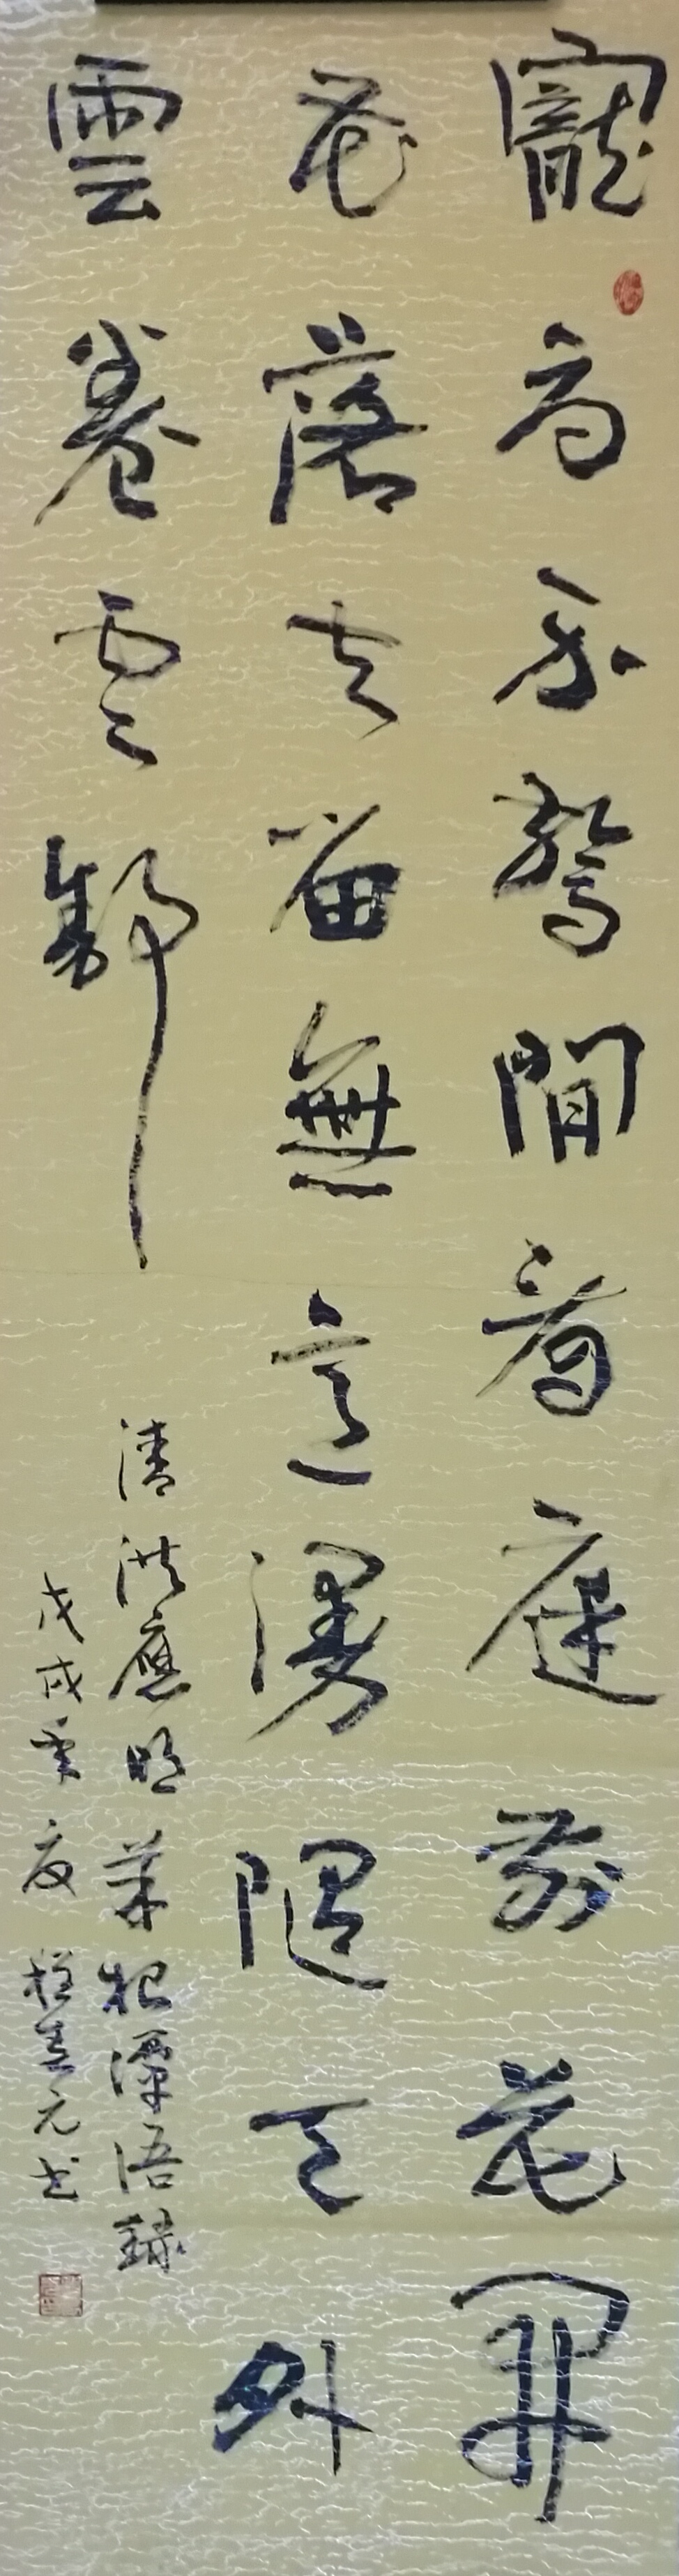 寵辱不驚閒看庭前花開
花落去留無意漫隨天外
雲卷雲舒
清洪應明菜根譚語錄
戊戌季夏程春元书